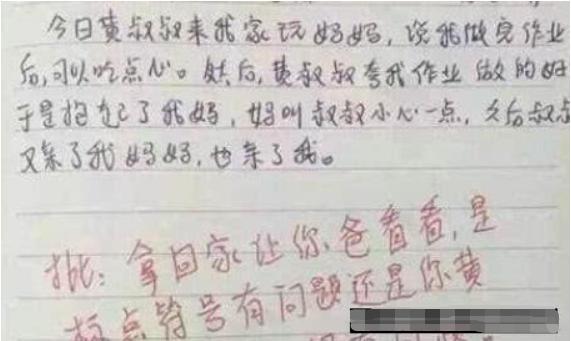 今日黄叔叔来我家玩妈妈，说我做完作业
后，可以吃点心。然后，黄叔叔夸我作业做的好
于是抱起了我妈，妈叫叔叔小心一点，之后叔叔
又亲了我妈妈，也亲了我。
批：拿回家让你爸看看，是
标点符号有问题还是你黄